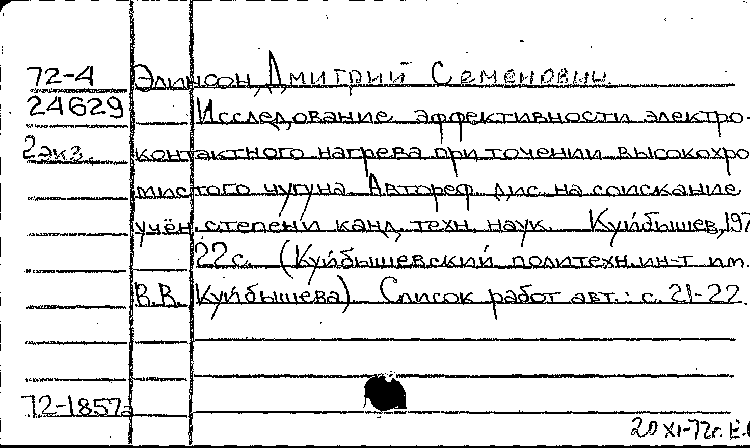 72-4 Элинсон, Дмитрий Семенович.
24629 Исследование эффективности электро-
2экз. контактного нагрева при точении высокохро
мистого чугуна. Автореф. дис. на соискание
учён. степени канд. техн. наук. Куйбышев, 197
22 с. (Куйбышевский политехн. ин-т им.
В.В. Куйбышева). Список работ авт.: с. 21-22.
72-1857а
20 XI-72г. Е.